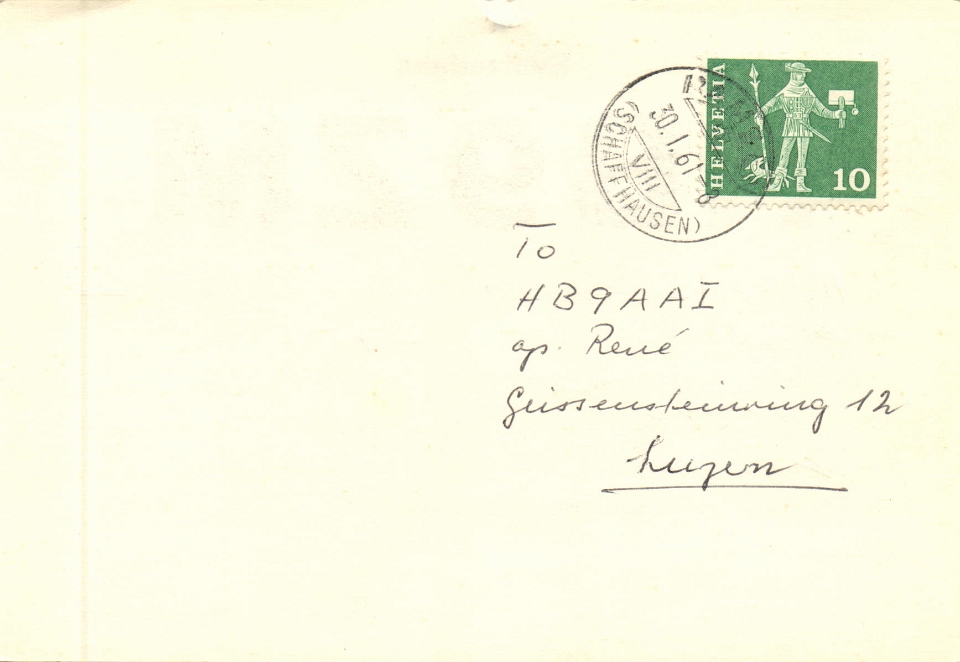 HELVETIA
10
30.1.61-8
VIII
(SCHAFFHAUSEN)
To
HB9AAI
op. René
Geissensteinring 12
Luzern